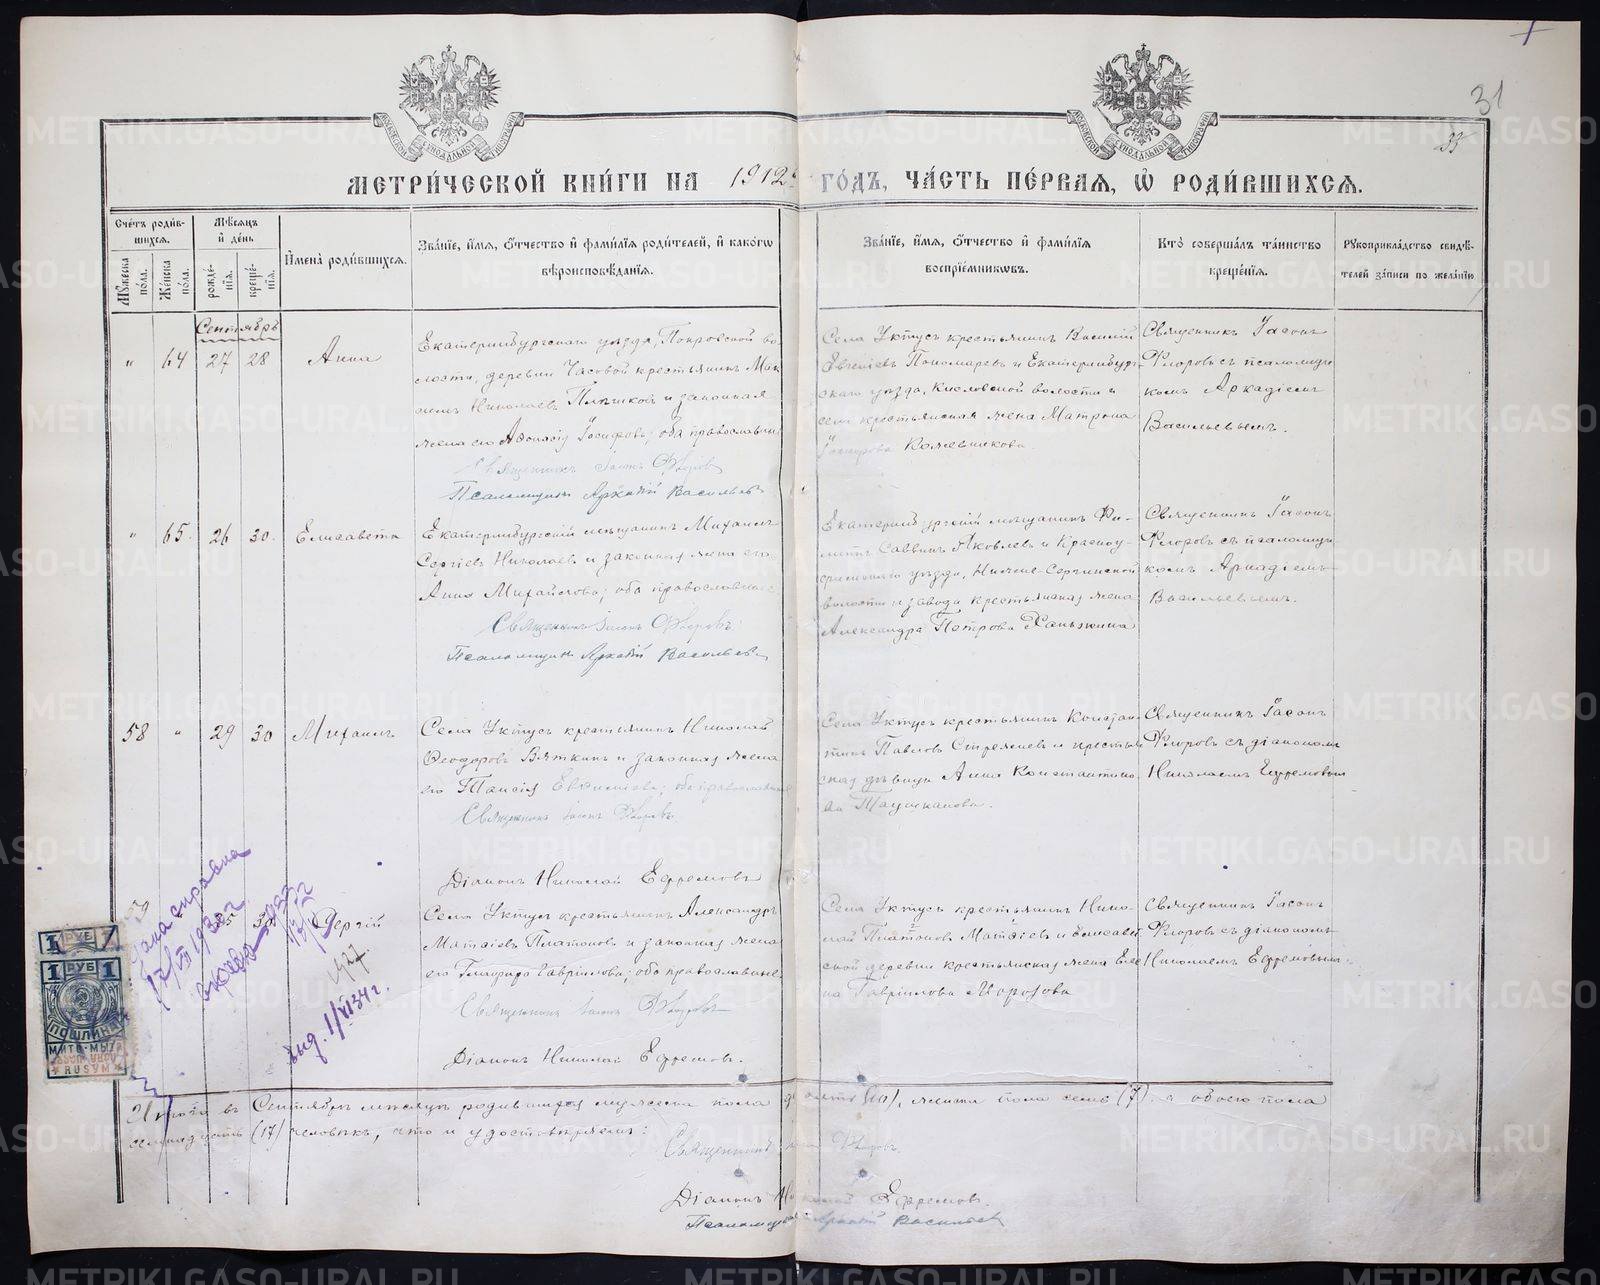 31
33
МЕТРИ́ЧЕСКОЙ КНИ́ГИ НА 1912 ГО́ДЪ, ЧА́СТЬ ПЕ́РВАЯ, Ѽ РОДИ́ВШИХСЯ.
Сче́тъ роди́вшихся.
Мꙋ́жеска по́ла.
Же́нска по́ла.
Мѣ́сяцъ и҆ де́нь
рожде́нїя.
креще́нїя.
И҆мена̀ роди́вшихся.
Зва́нїе, и҆́мя, ѻ҆́тчество и҆ фами́лїя роди́телей, и҆ како́гѡ вѣроисповѣ́данїя.
Зва́нїе, и҆́мя, ѻ҆́тчество и҆ фами́лїя воспрїе́мникѡвъ.
Кто̀ соверша́лъ та́инство креще́нїя.
Рꙋкоприкла́дство свидѣ́телей за́писи по жела́нїю.
Сентябрь
" 64 27 28 Анна
Екатеринбургскаго уѣзда, Покровской во-
лости, деревни Часовой крестьянинъ Мак-
Николаевъ и законная
жена его Іосифова; оба православны
Священникъ Іасонъ Флоровъ
Псаломщикъ Аркадій Васильевъ
Села Уктусъ крестьянинъ Василій
Евгеніевъ Пономаревъ и Екатеринбург-
скаго уѣзда, Кисловской волости и
села крестьянская жена Матрона
Кожевникова.
Священникъ Іасонъ
Флоровъ съ псаломщи-
комъ Аркадіемъ
Васильевымъ.
" 65. 26 30. Елисавета
Екатеринбургскій мѣщанинъ Михаилъ
Сергіевъ Николаевъ и законная жена его
Анна Михайлова; оба православны.
Священникъ Іасонъ Флоровъ
Псаломщикъ Аркадій Васильевъ
Екатеринбургскій мѣщанинъ Фи-
Саввинъ Яковлевъ и Красноу-
фимскаго уѣзда, Нижне-Сергинской
волости и завода крестьянская жена
Александра Петрова
Священникъ Іасонъ
Флоровъ съ псаломщи-
комъ Аркадіемъ
Васильевымъ.
58 " 29 30 Михаилъ
Села Уктусъ крестьянинъ Николай
Ѳеодоровъ Вяткинъ и законная жена
его Таисія; оба православные
Священникъ Іасонъ Флоровъ
Діаконъ Николай Ефремовъ
Села Уктусъ крестьянинъ Констан-
тинъ Павловъ и крестьян-
ская дѣвица Анна Константино-
ва
Священникъ Іасонъ
Флоровъ съ діакономъ
Николаемъ Ефремовымъ
59 30 Сергій
Села Уктусъ крестьянинъ Александръ
Матѳіевъ Платоновъ и законная жена
его Гавріилова; оба православные
Священникъ Іасонъ Флоровъ
Діаконъ Николай Ефремовъ.
Села Уктусъ крестьянинъ Нико-
лай Платоновъ Матѳіевъ и Елисавет-
ской деревни крестьянская жена Еле-
на Гавріилова Морозова
Священникъ Іасонъ
Флоровъ съ діакономъ
Николаемъ Ефремовымъ.
справка
выд. 1/VI 34 г.
1 РУБ
1 РУБ 1
ПОШЛИНА
МИТО-МЫТА
RUSUM
Итого въ Сентябрѣ мѣсяцѣ родившихся мужеска пола десять (10), женска пола семь (7), а обоего пола
семнадцать (17) человѣкъ, что и удостовѣряемъ:
Священникъ Іасонъ Флоровъ.
Діаконъ Николай Ефремовъ.
Псаломщикъ Аркадій Васильевъ
METRIKI.GASO-URAL.RU